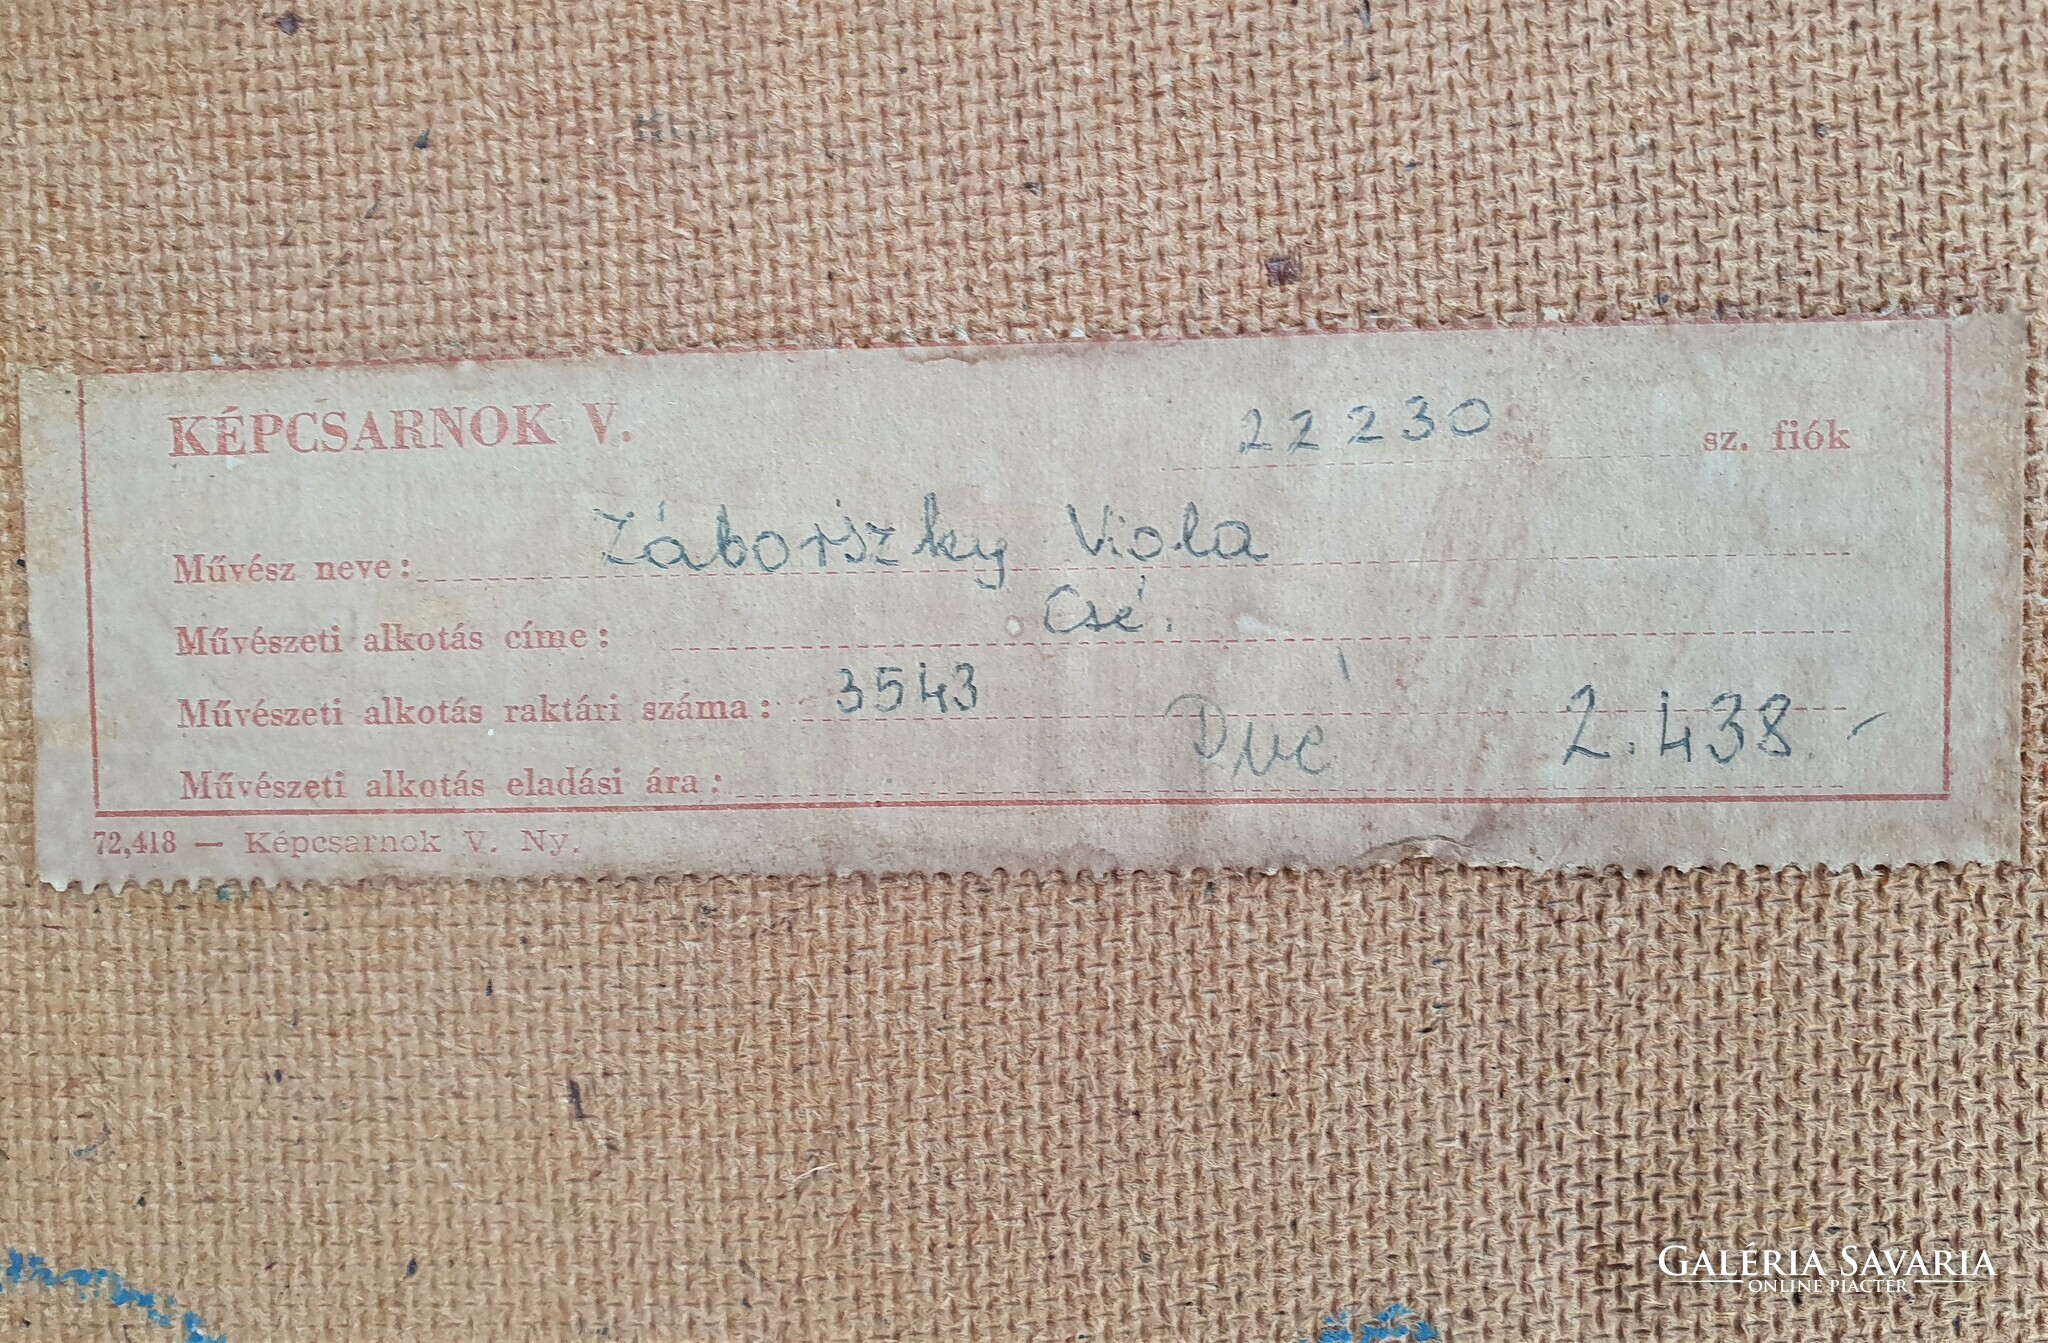 KÉPCSARNOK V. 22230 sz. fiók
Művész neve: Záborszky Viola
Művészeti alkotás címe: Csé.
Művészeti alkotás raktári száma: 3543
Művészeti alkotás eladási ára: 2.438.-
72,418 — Képcsarnok V. Ny.
GALÉRIA SAVARIA
ONLINE PIACTÉR